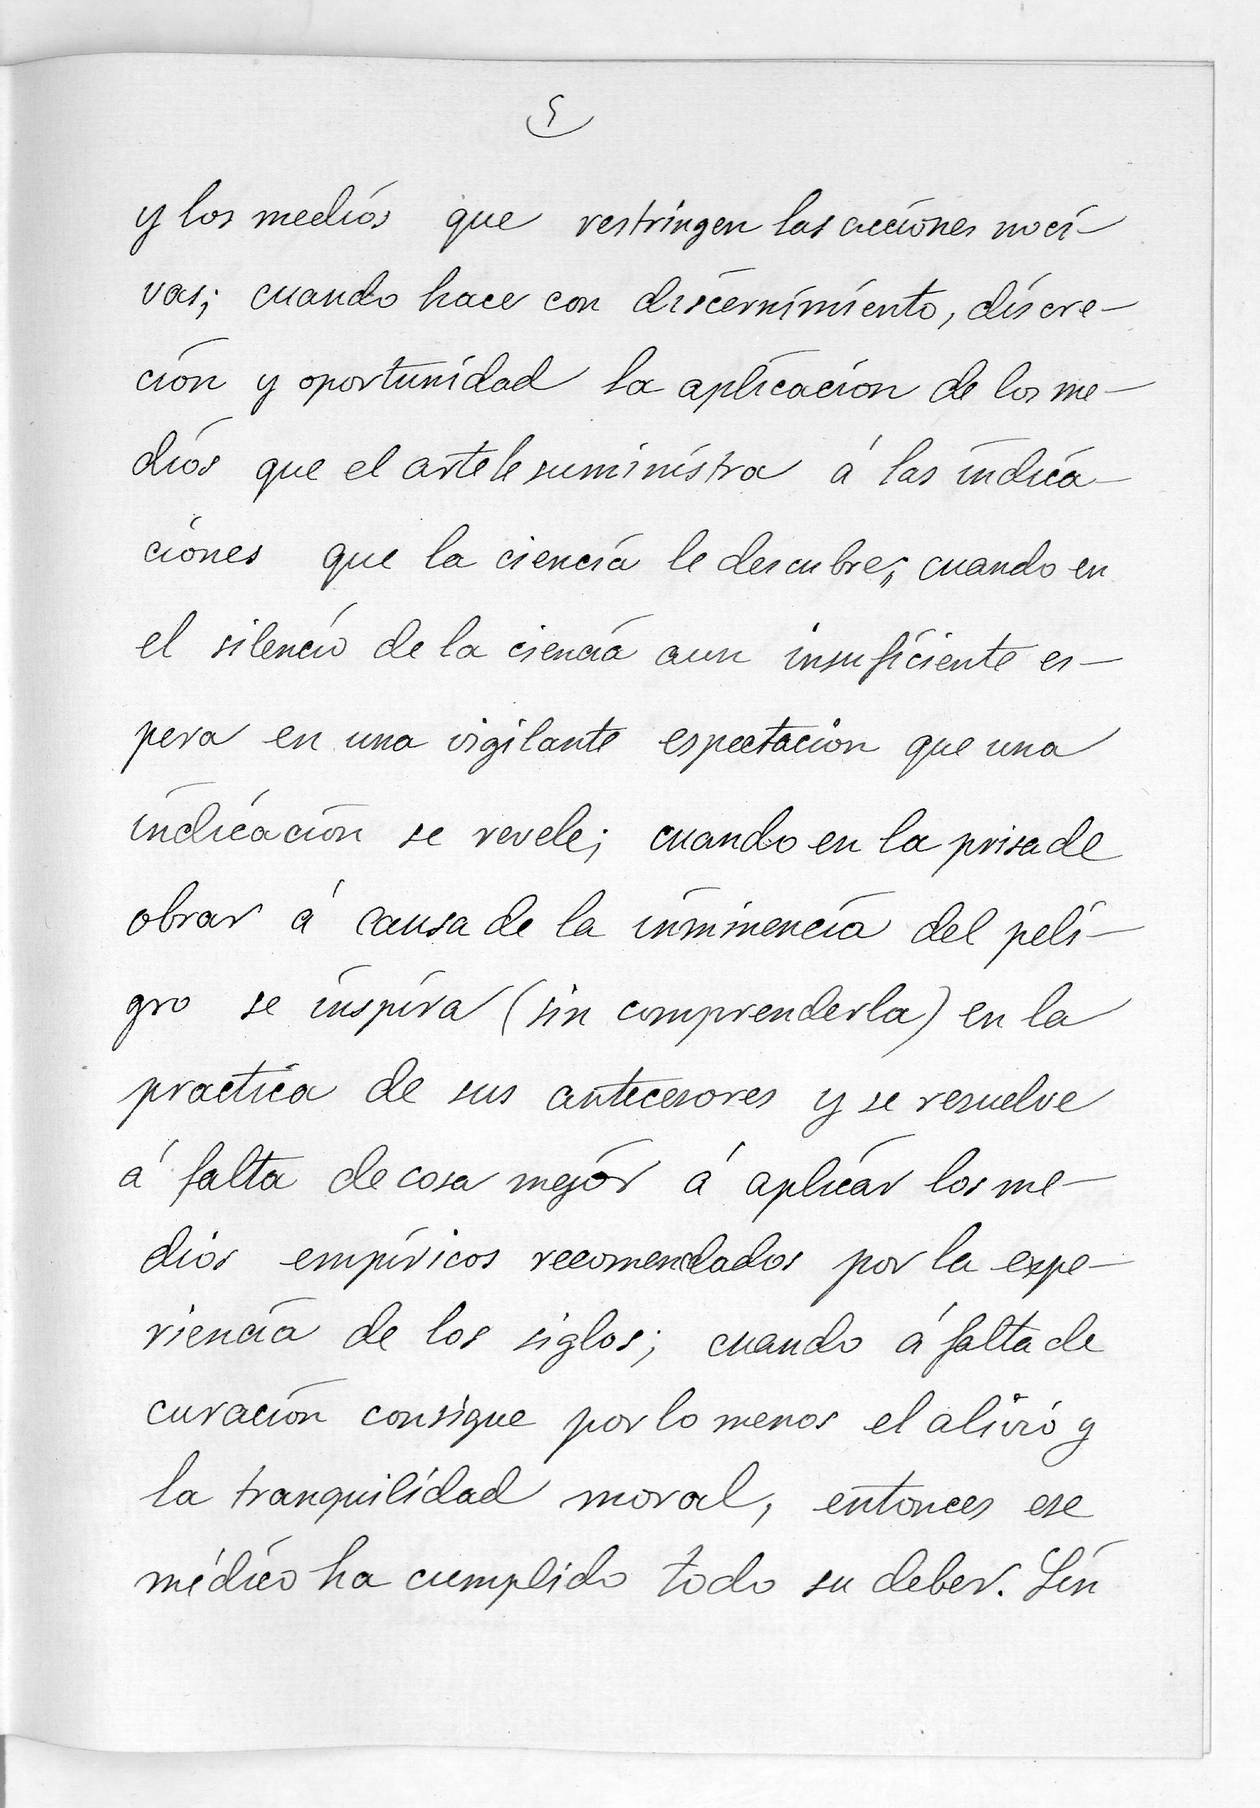 5
y los medios que restringen las acciones noci-
vas; cuando hace con discernimiento, discre-
ción y oportunidad la aplicación de los me-
dios que el arte le suministra á las indica-
ciones que la ciencia le descubre; cuando en
el silencio de la ciencia aun insuficiente es-
pera en una vigilante espectación que una
indicación se revele; cuando en la prisa de
obrar á causa de la inminencia del peli-
gro se inspira (sin comprenderla) en la
practica de sus antecesores y se resuelve
á falta de cosa mejor á aplicar los me-
dios empíricos recomendados por la expe-
riencia de los siglos; cuando á falta de
curación consigue por lo menos el alivio y
la tranquilidad moral, entonces ese
médico ha cumplido todo su deber. Sin